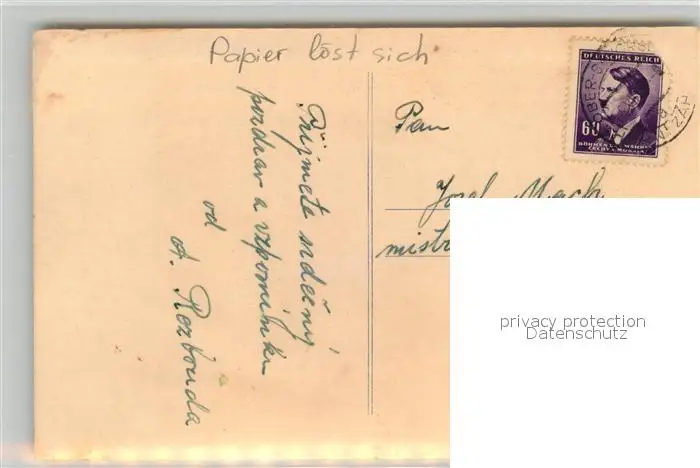 Papier löst sich
DEUTSCHES REICH
60
BÖHMEN UND MÄHREN
ČECHY A MORAVA
Přijměte srdečný
pozdrav a vzpomínku
od
A. Rozbouda
Pan
Josef Mach
mistr
privacy protection
Datenschutz